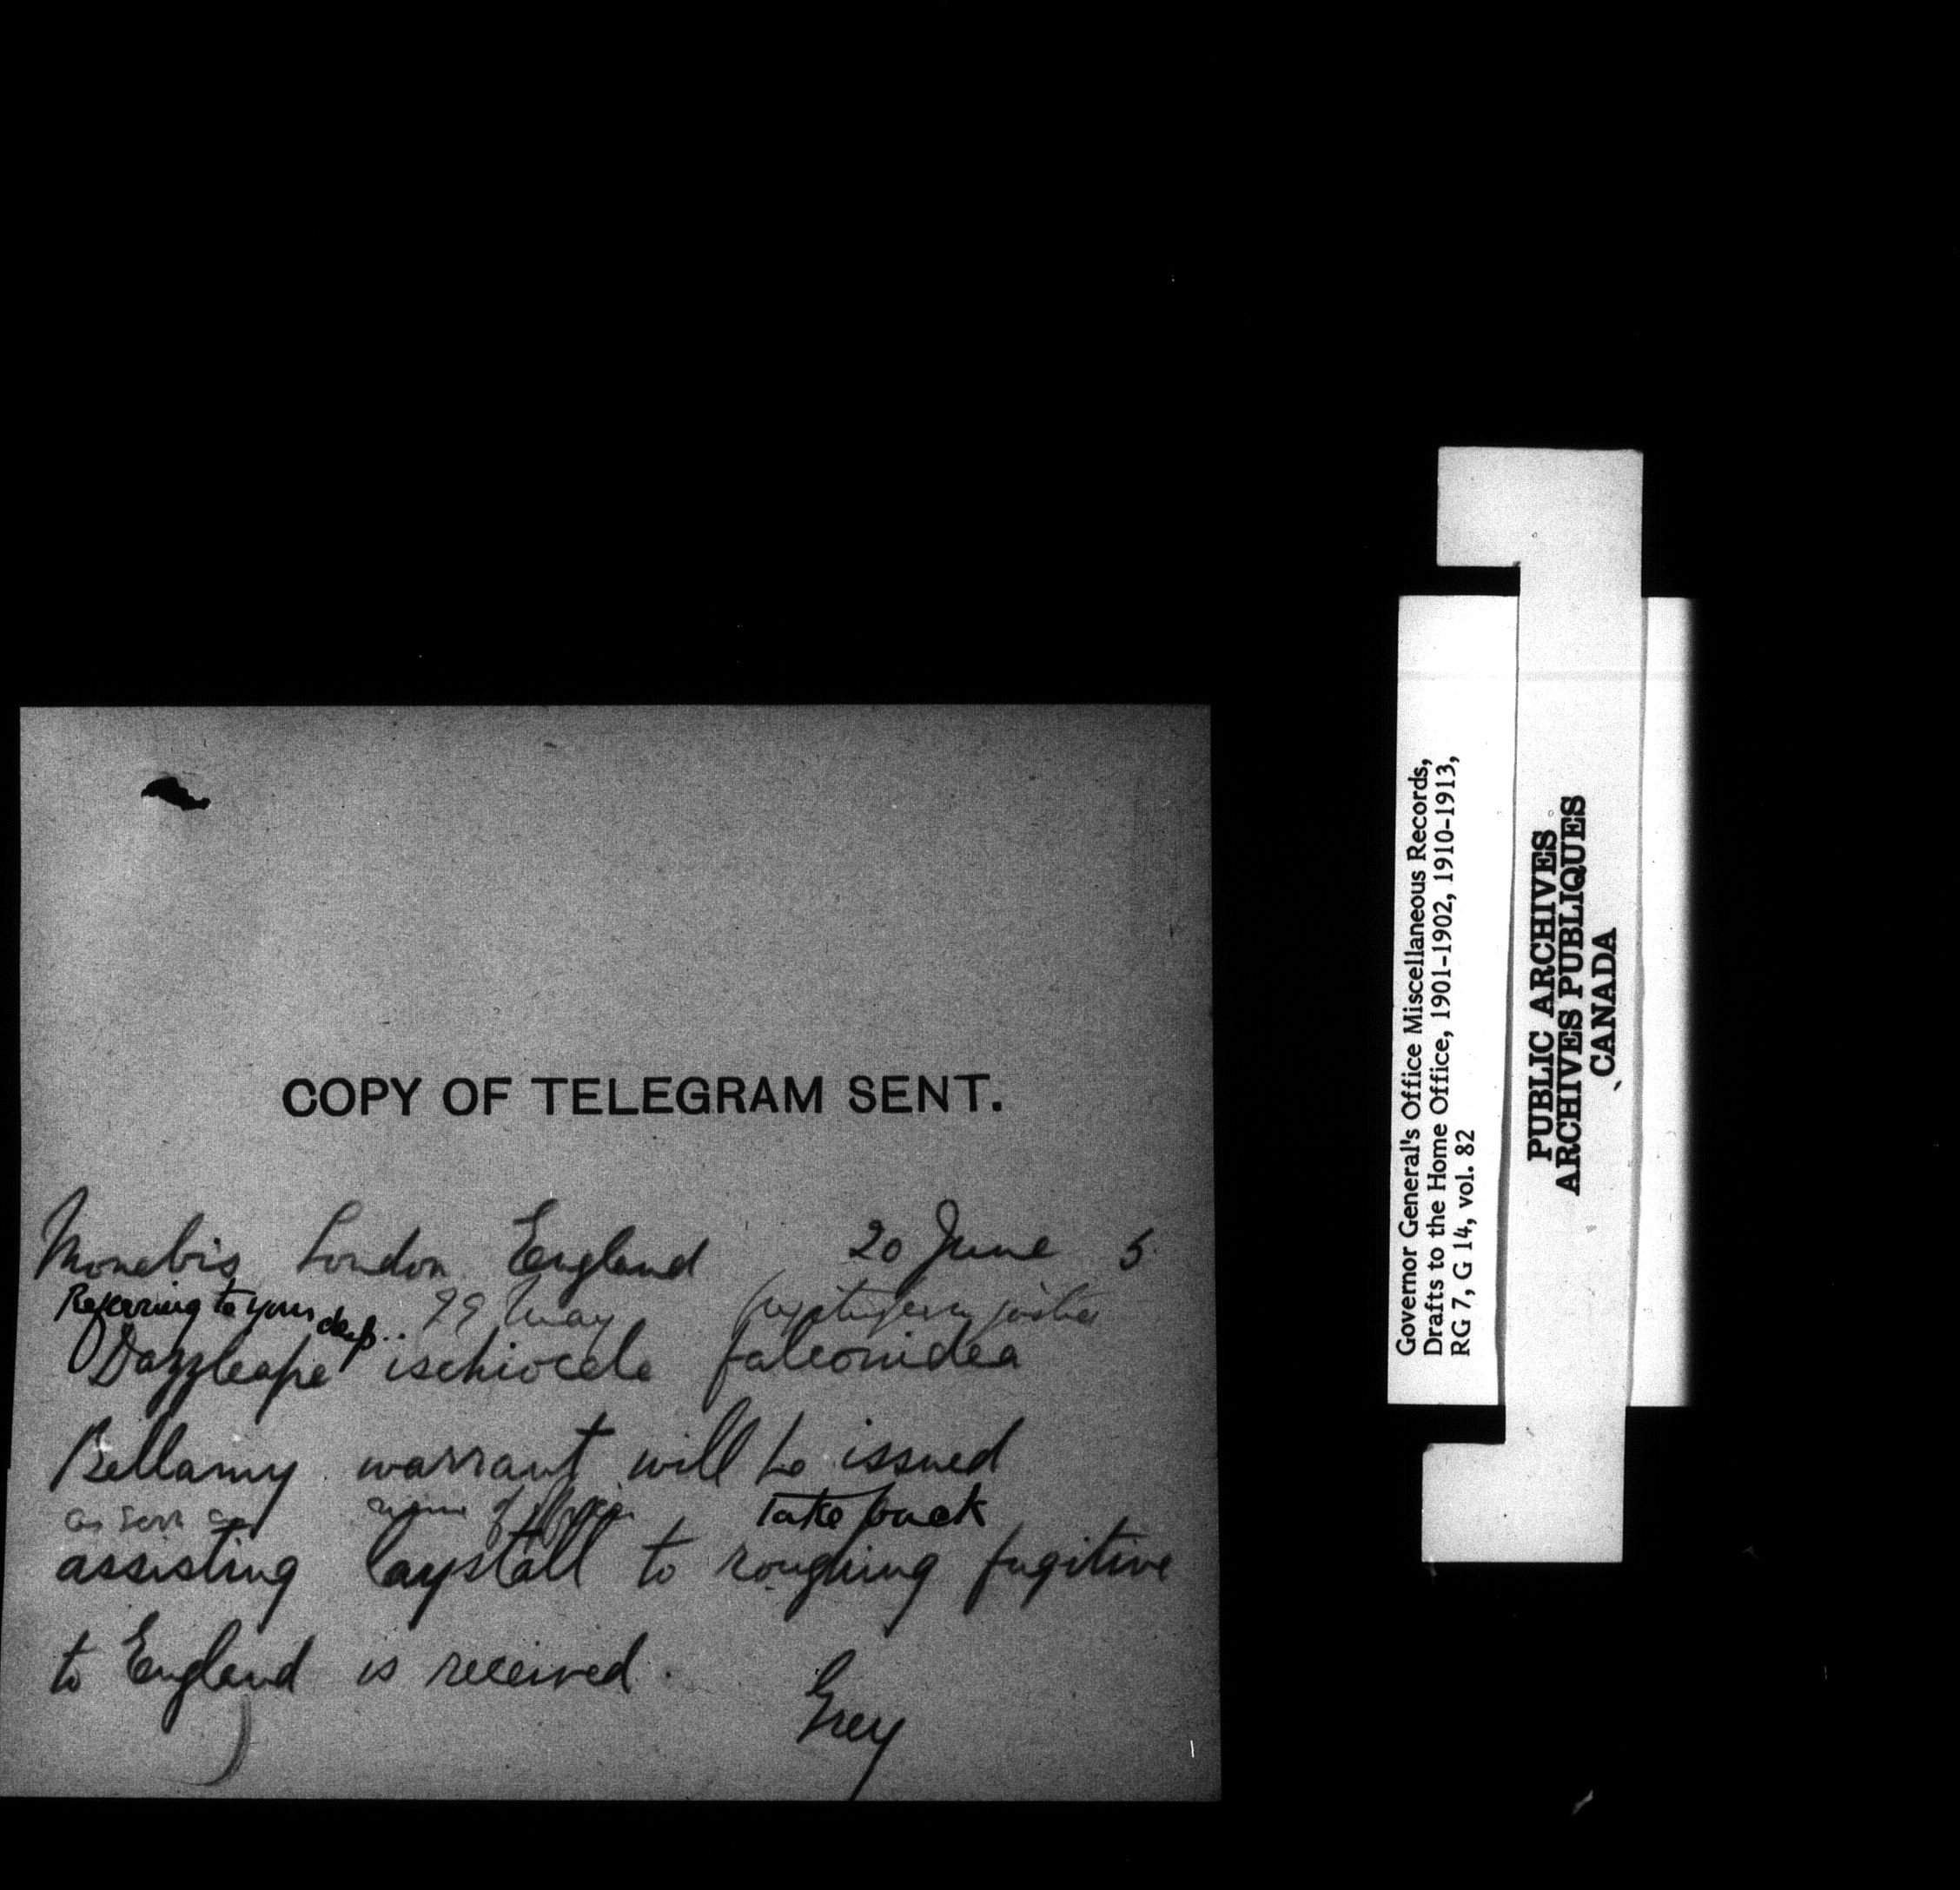 COPY OF TELEGRAM SENT.
Monebis London England 20 June 5
Referring to your desp.. 29 May fugitive from justice
Dazzleape ischiocele falconidea
Bellamy warrant will be issued
as soon as name of take back
assisting laystall to roughing fugitive
to England is received.
Grey
Governor General's Office Miscellaneous Records,
Drafts to the Home Office, 1901-1902, 1910-1913,
RG 7, G 14, vol. 82
PUBLIC ARCHIVES
ARCHIVES PUBLIQUES
CANADA